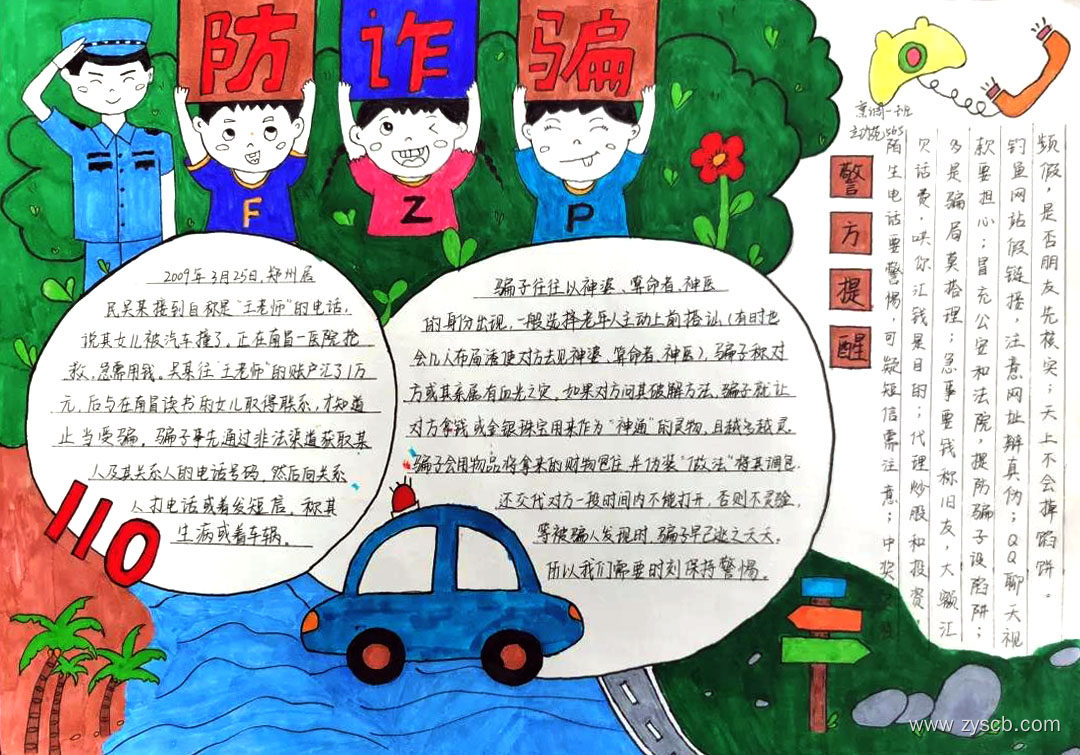 防诈骗
F Z P
2009年3月25日,郑州居
民吴某接到自称是“王老师”的电话,
说其女儿被汽车撞了,正在南昌一医院抢
救,急需用钱。吴某往“王老师”的账户汇了1万
元,后与在南昌读书的女儿取得联系,才知道
上当受骗。骗子事先通过非法渠道获取某
人及其关系人的电话号码,然后向关系
人打电话或着发短信,称其
生病或着车祸。
110
骗子往往以神婆、算命者、神医
的身份出现,一般选择老年人主动上前搭讪(有时也
会几人布局诱使对方去见神婆、算命者、神医),骗子称对
方或其亲属有血光之灾,如果对方问其破解方法,骗子就让
对方拿钱或金银珠宝用来作为“神通”的灵物,且越多越灵。
骗子会用物品将拿来的财物包住,并伪装“做法”将其调包,
还交代对方一段时间内不能打开,否则不灵验,
等被骗人发现时,骗子早已逃之夭夭。
所以我们需要时刻保持警惕。
警方提醒
陌生电话要警惕,可疑短信需注意;中奖
贝话费,哄你汇我是目的;代理炒股和投资,
多是骗局莫搭理;急事要钱称旧友,大额汇
款要担心;冒充公安和法院,提防骗子设陷阱;
钓鱼网站假链接,注意网址辩真伪;QQ聊天视
频假,是否朋友先核实;天上不会掉馅饼。
www.zyscb.com